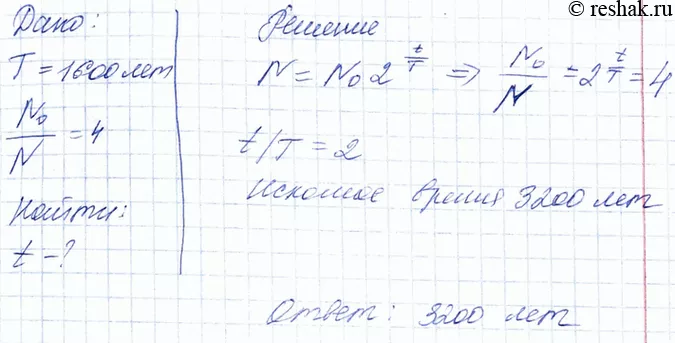 © reshak.ru
Дано:
T = 1600 лет
N₀/N = 4
Найти:
t - ?
Решение
N = N₀ 2^(t/T) => N₀/N = 2^(t/T) = 4
t/T = 2
Искомое время 3200 лет
Ответ: 3200 лет